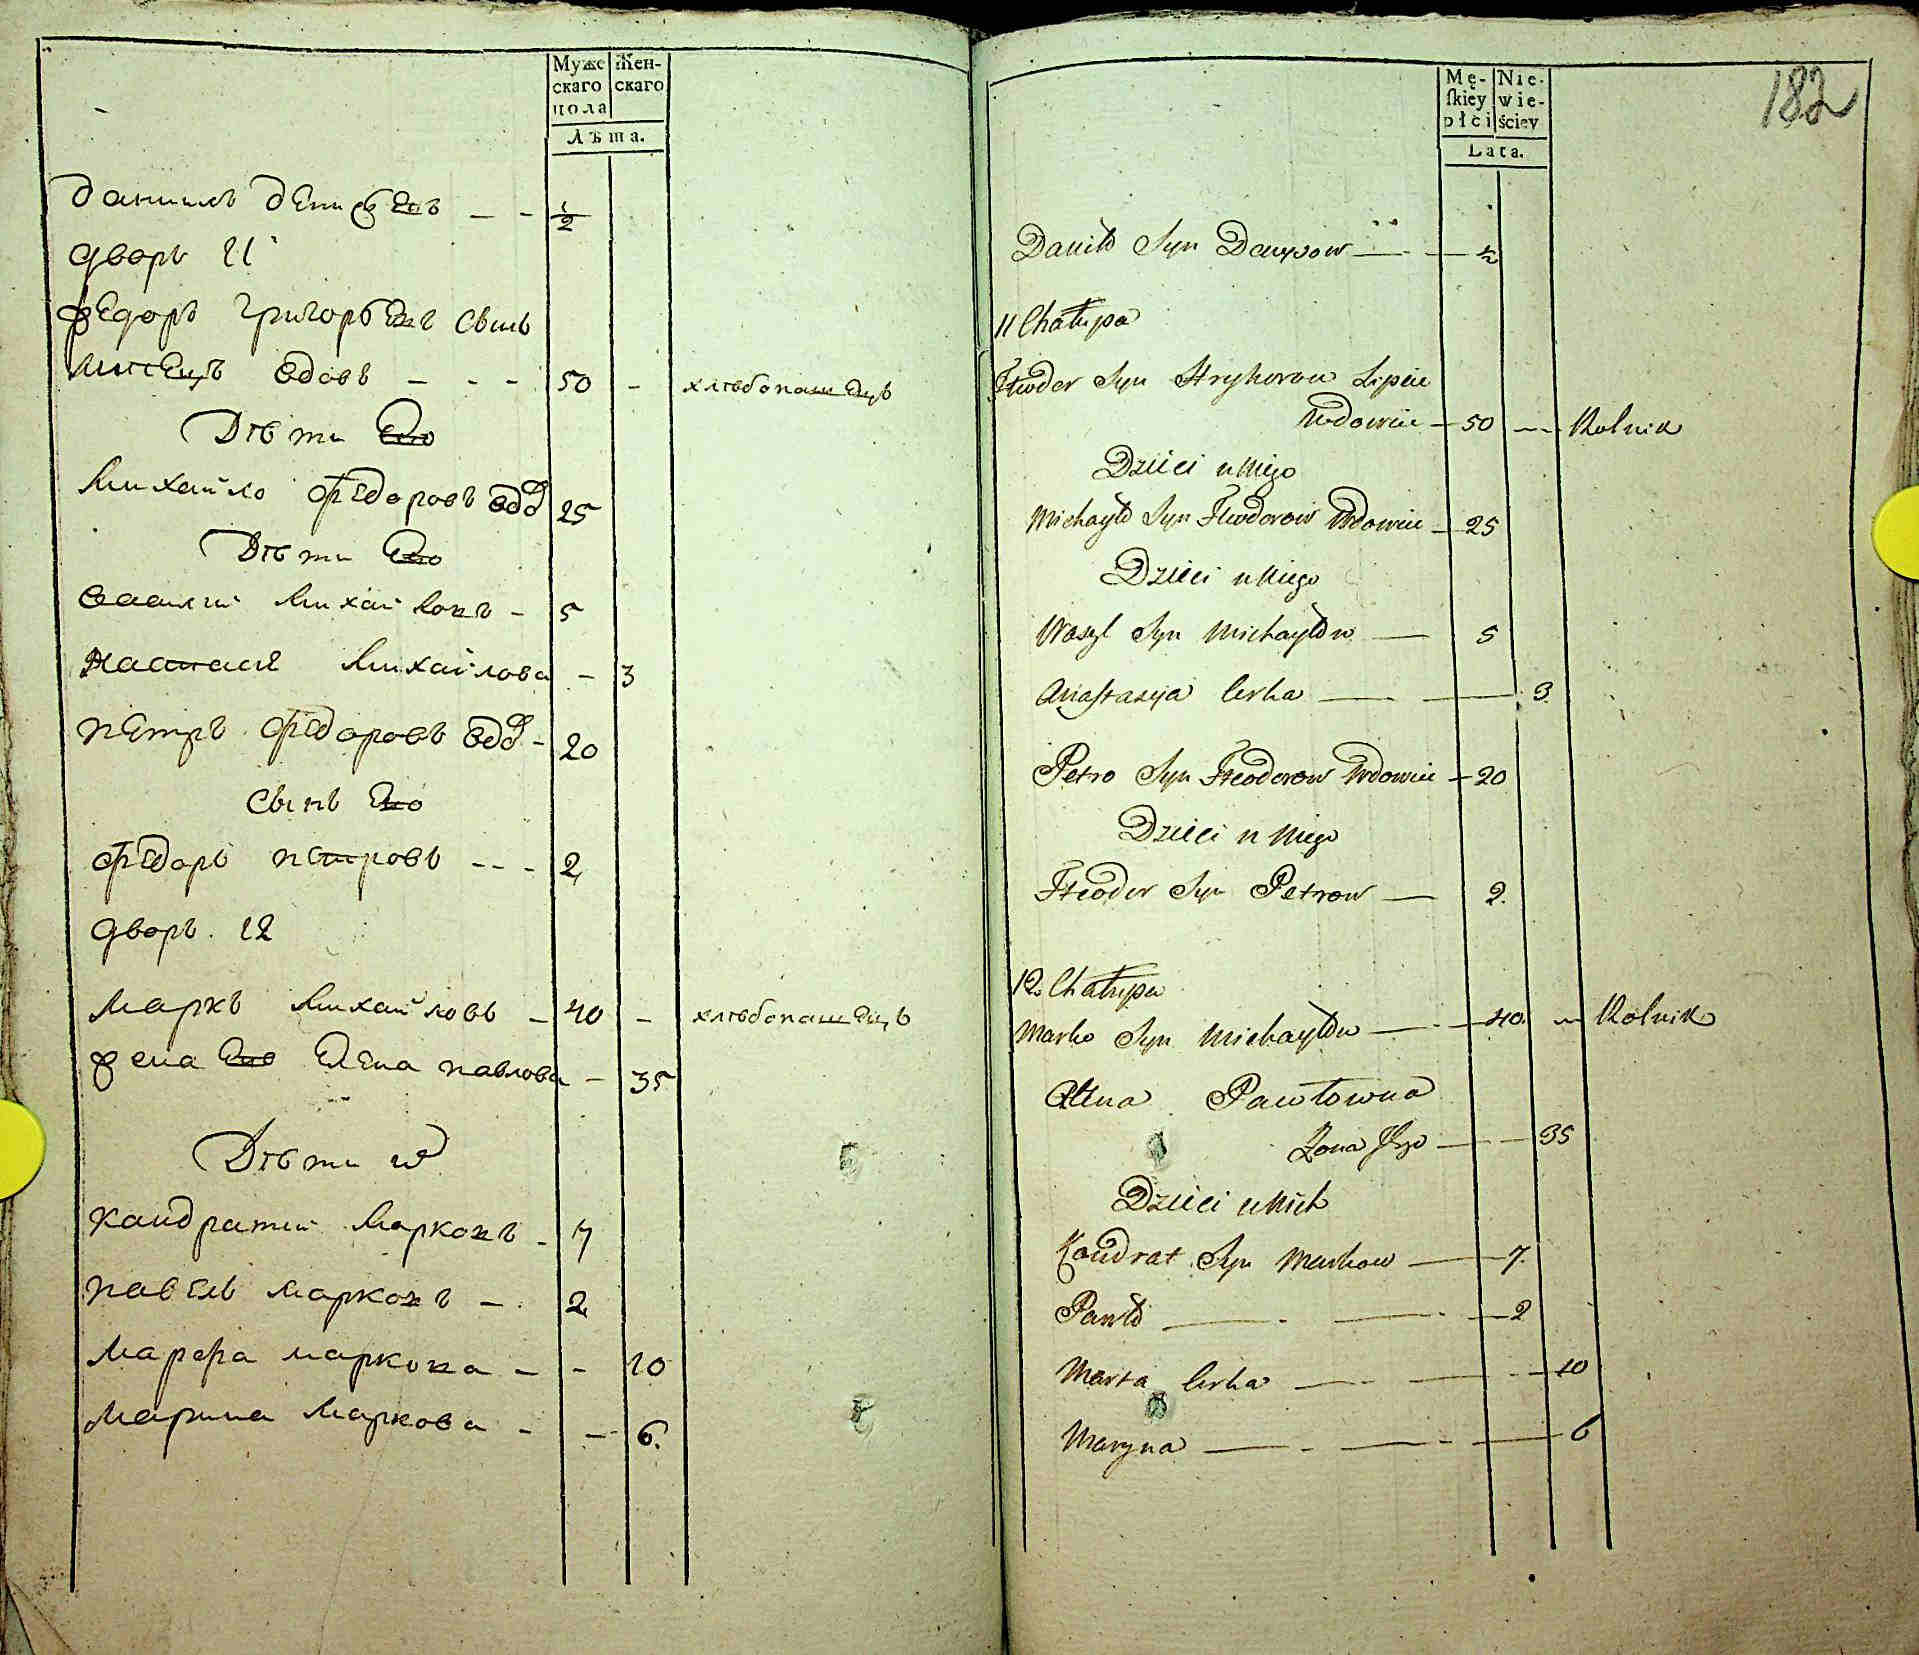 Муже скаго пола
Жен- скаго
Лѣта.
Данилъ денисовъ - - ½
дворъ 11
федоръ григорьевъ сынъ
вдовъ - - - 50 - хлѣбопашецъ
Дѣти Его
Михайло федоровъ вдо 25
Дѣти Его
василий Михайловъ - 5
Настася Михайлова - 3
петръ федоровъ вдо - 20
Сынъ Его
федоръ петровъ - - - 2
дворъ 12
Маркъ Михайловъ - 40 - хлѣбопашецъ
жена Его Елена павлова - 35
Дѣти их
Кандратий Марковъ - 7
павелъ марковъ - 2
Марфа маркова - - 10
Марина Маркова - - 6.
182
Mę- skiey płci
Nie- wie- ściey
Lata.
Daniło Syn Denysow — ½
11 Chałupa
Fteodor Syn Hryhorow
Wdowiec — 50 — Rolnik
Dzieci u Niego
Michayło Syn Fteodorow Wdowiec — 25
Dzieci u Niego
Wasyl Syn Michayłow — 5
Anastasyia Corka — 3
Petro Syn Fteodorow Wdowiec — 20
Dzieci u Niego
Fteodor Syn Petrow — 2.
12. Chałupa
Marko Syn Michayłow — 40. — Rolnik
Ałena Pawłowna
Zona Jego — 35
Dzieci u Nich
Kondrat Syn Markow — 7.
Pawło — 2
Marta Corka — 10
Maryna — 6